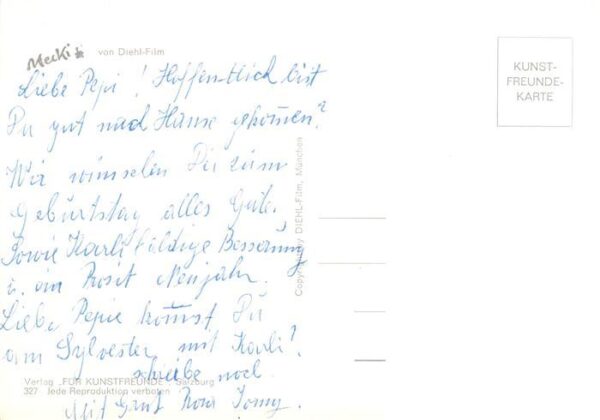 Mecki von Diehl-Film
Liebe Pepi! Hoffentlich bist
Du gut nach Hause gekom̅en?
Wir wünschen Dir zum
Geburtstag alles Gute.
Sowie Karli baldige Besserung
u. ein Prosit Neujahr.
Liebe Pepie kom̅st Du
am Sylvester mit Karli?
schreibe noch.
Mit
KUNST-
FREUNDE-
KARTE
Copyright by DIEHL-Film, München
Verlag „FÜR KUNSTFREUNDE", Salzburg
327 Jede Reproduktion verboten